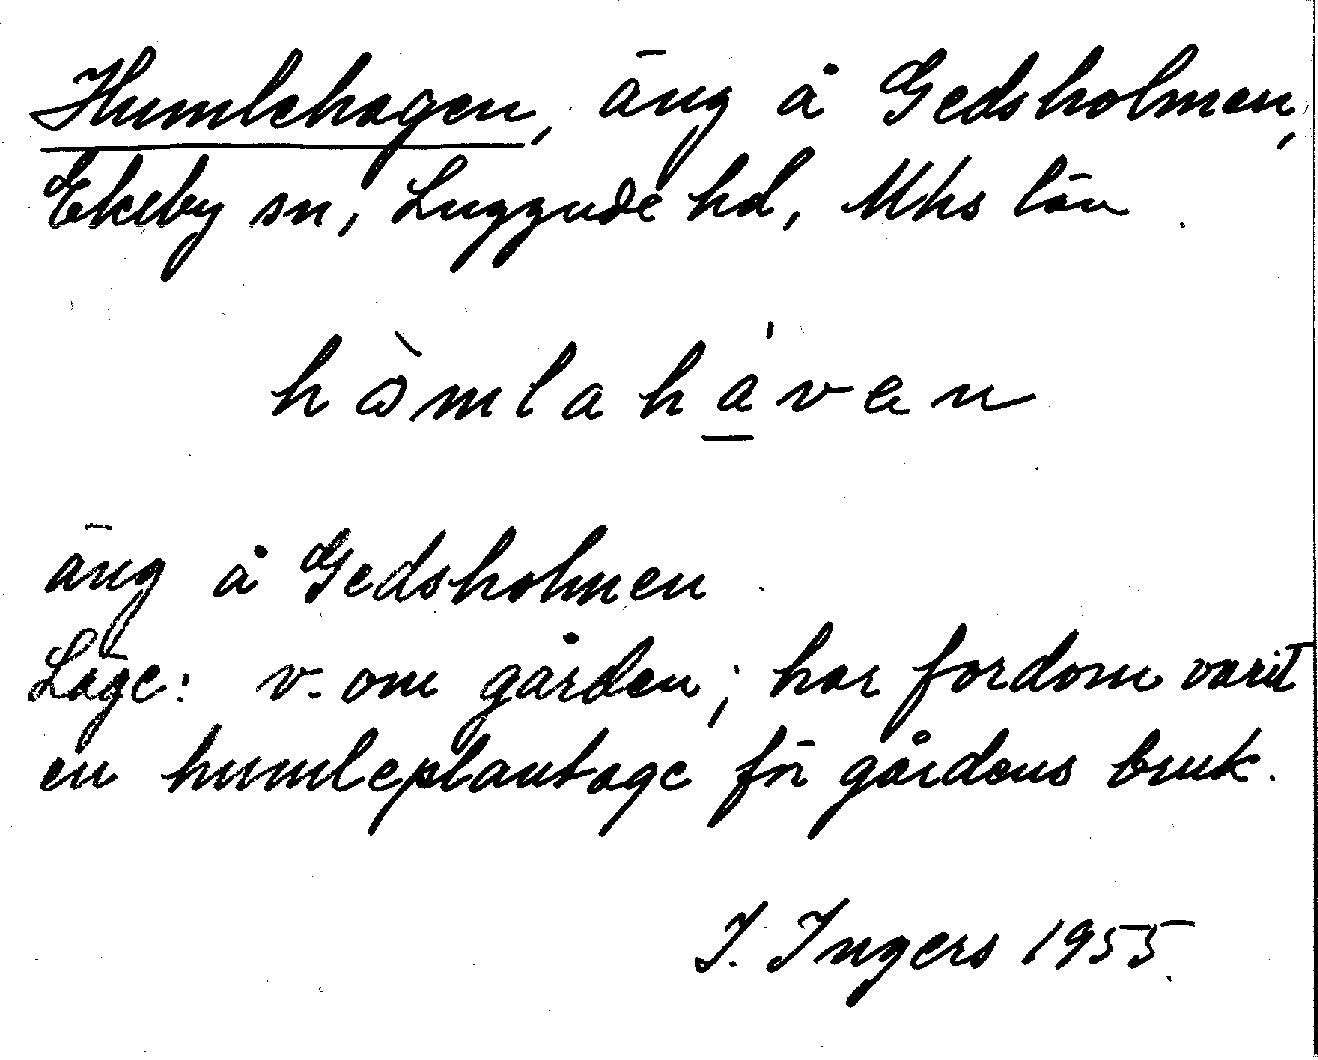 Humlehagen, äng å Gedsholmen,
Ekeby sn, Luggude hd, Mhs län
hò̵mlahá̱van
äng å Gedsholmen
Läge: v. om gården; har fordom varit
en humleplantage för gårdens bruk.
I. Ingers 1955